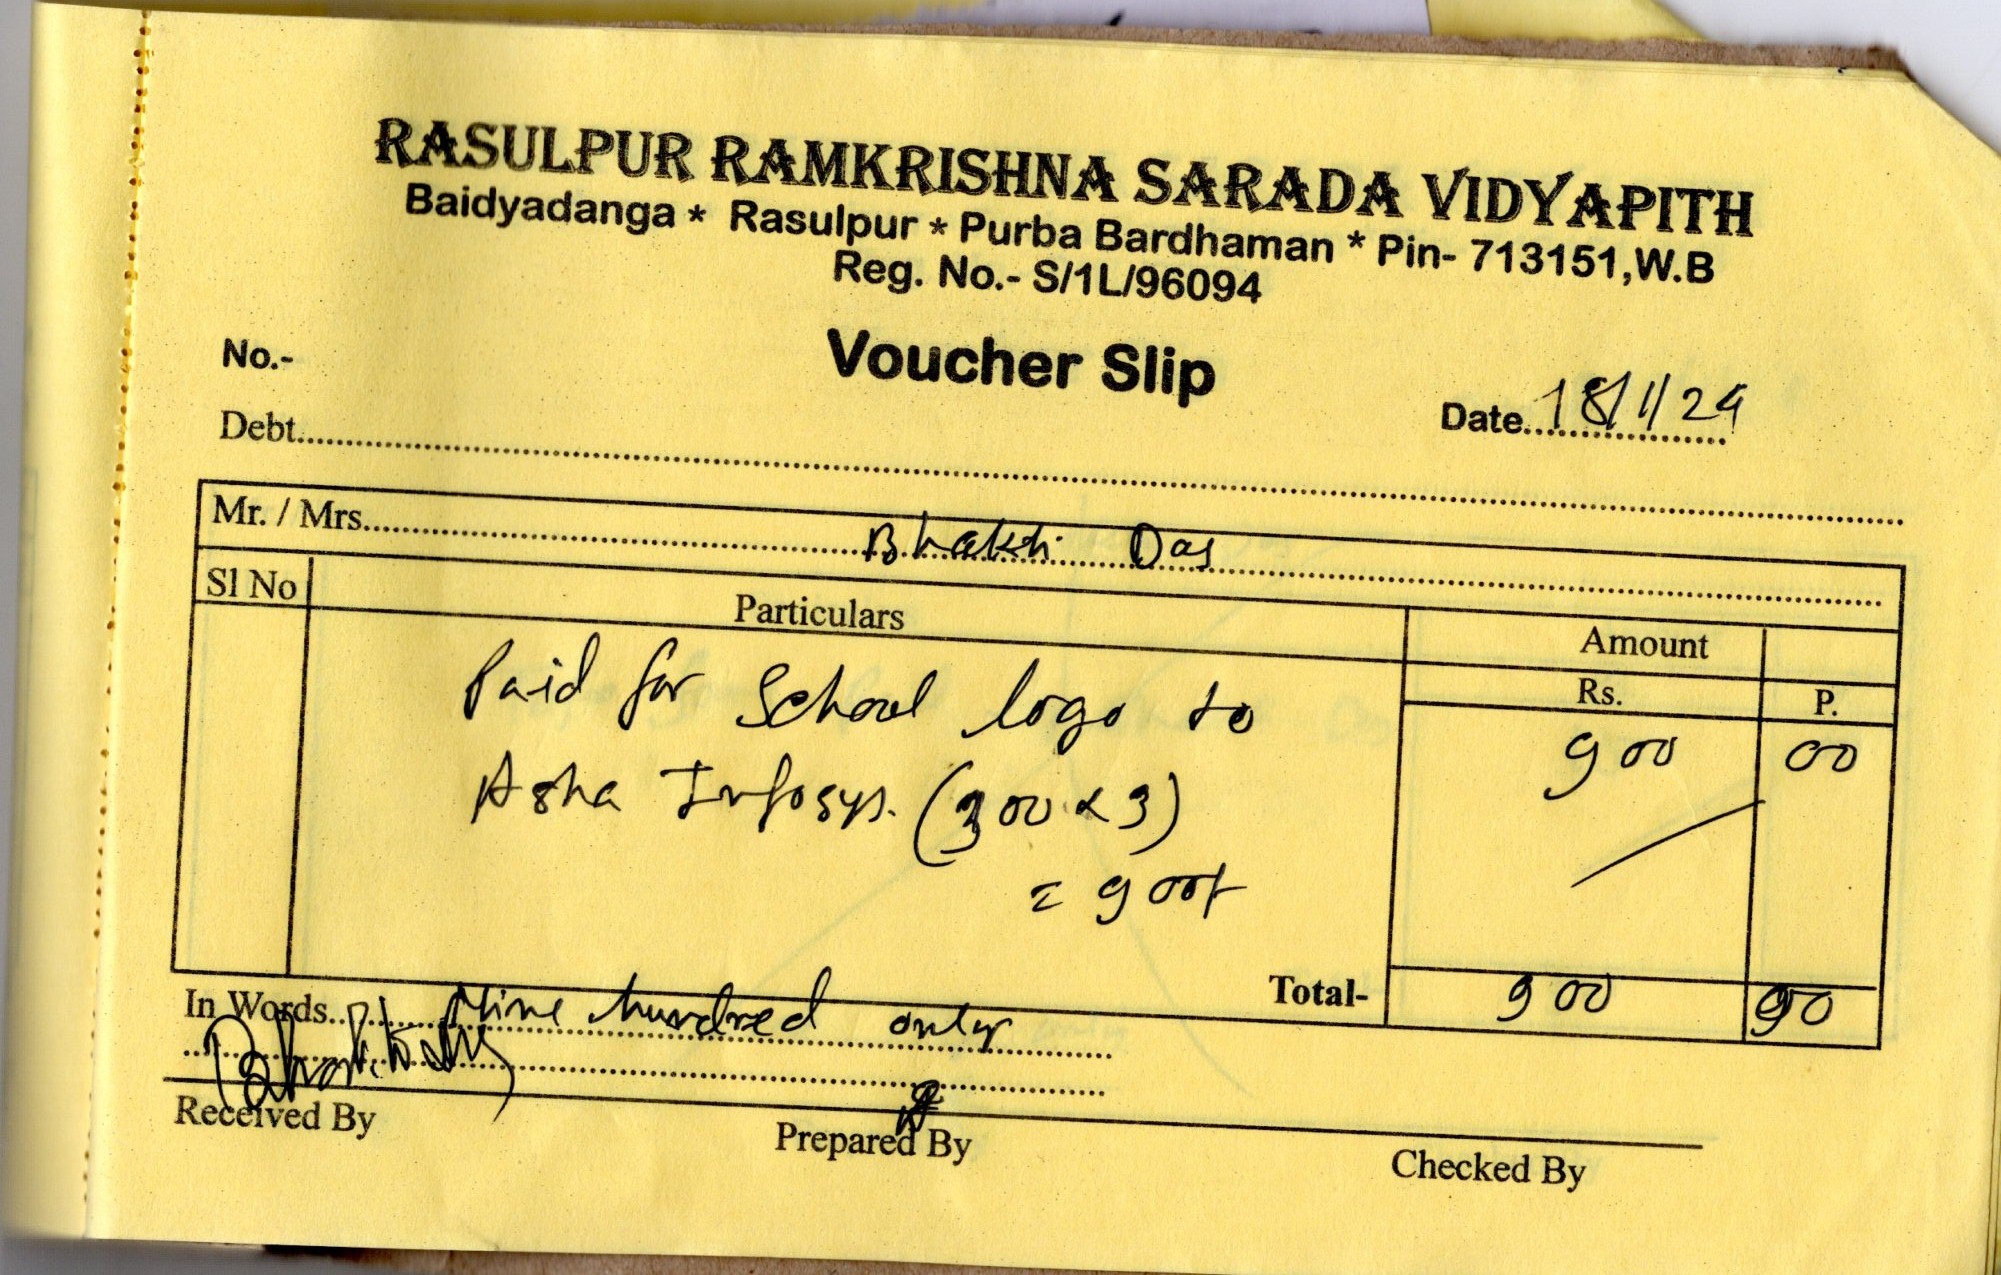 RASULPUR RAMKRISHNA SARADA VIDYAPITH
Baidyadanga * Rasulpur * Purba Bardhaman * Pin- 713151,W.B
Reg. No.- S/1L/96094
Voucher Slip
No.-
Date 18/1/24
Debt
Mr. / Mrs. Bhakti Das
Sl No Particulars Amount
Rs. P.
Paid for School logo to 900 00
Asha Infosys. (300 x 3)
= 900/-
Total- 900 00
In Words Nine hundred only
Received By
Prepared By
Checked By